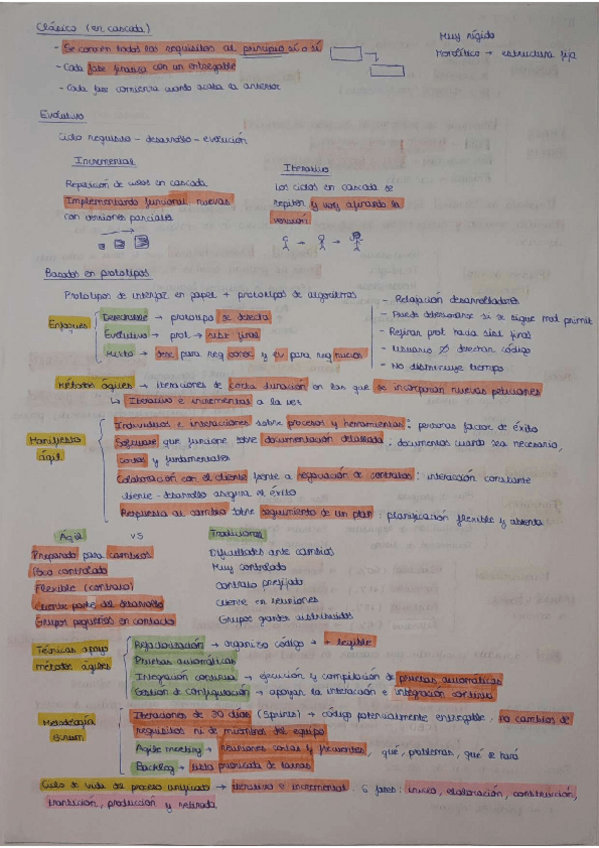 Clásico (en cascada)
- Se conocen todos los requisitos al principio sí o sí
Muy rígido
Monolítico → estructura fija
- Cada fase finaliza con un entregable
- Cada fase comienza cuando acaba la anterior
Evolutivo
Ciclo requisito - desarrollo - evolución
Incremental
Iterativo
Repetición de ciclos en cascada
Implementando funcional. nuevas
con versiones parciales
Los ciclos en cascada se
repiten y voy afinando la
versión
Basados en prototipos
Prototipos de interfaz en papel + prototipos de algoritmos
Enfoques
Desechable → prototipo se desecha
Evolutivo → prot. → sist final
Mixto → para req y ev para req
- Relajación desarrolladores
- Puede si se sigue mod. primit
- prot. hacia sist final
- Usuario ∅ código
- No disminuye tiempo
Métodos ágiles → iteraciones de corta duración en las que se incorporan nuevas peticiones
↳ Iterativo e incremental a la vez
Manifiesto
ágil
Individuos e interacciones sobre procesos y herramientas: personas factor de éxito
Software que funcione sobre documentación detallada: documentos cuando sea necesario,
cortos y fundamentales
Colaboración con el cliente frente a negociación de contratos: interacción constante
cliente - desarrollo asegura el éxito
Respuesta al cambio sobre seguimiento de un plan: planificación flexible y abierta
Ágil vs Tradicional
Preparado para cambios
Dificultades ante cambios
Poco controlado
Muy controlado
Flexible (contrato)
Contrato prefijado
Cliente parte del desarrollo
Cliente en reuniones
Grupos pequeños en contacto
Grupos grandes distribuidos
Técnicas apoyo
métodos ágiles
Refactorización → organizo código → + legible
Pruebas automáticas
Integración continua → ejecución y compilación de pruebas automáticas
Gestión de configuración → apoyar la interacción e integración continua
Metodología
Scrum
Iteraciones de 30 días (Sprints) → código potencialmente entregable. no cambios de
requisitos ni de miembros del equipo
Agile meeting → reuniones cortas y frecuentes, qué, problemas, qué se hará
Backlog → lista priorizada de tareas
Ciclo de vida del proceso unificado → iterativo e incremental. 6 fases: inicio, elaboración, construcción,
transición, producción y retirada